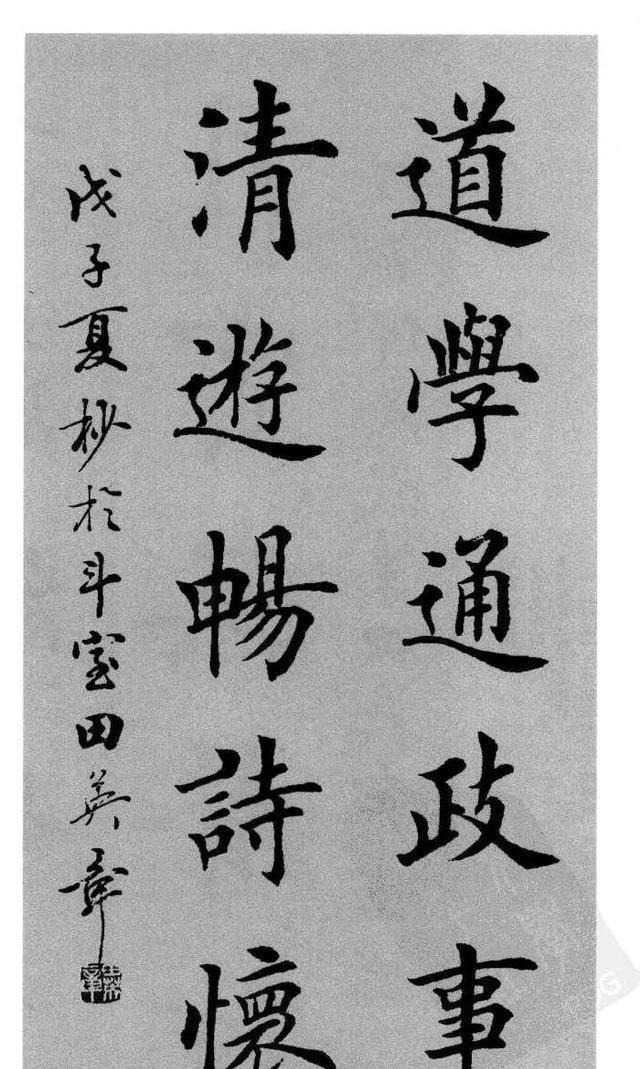 道學通政事
清遊暢詩懷
戊子夏杪於斗室田英章